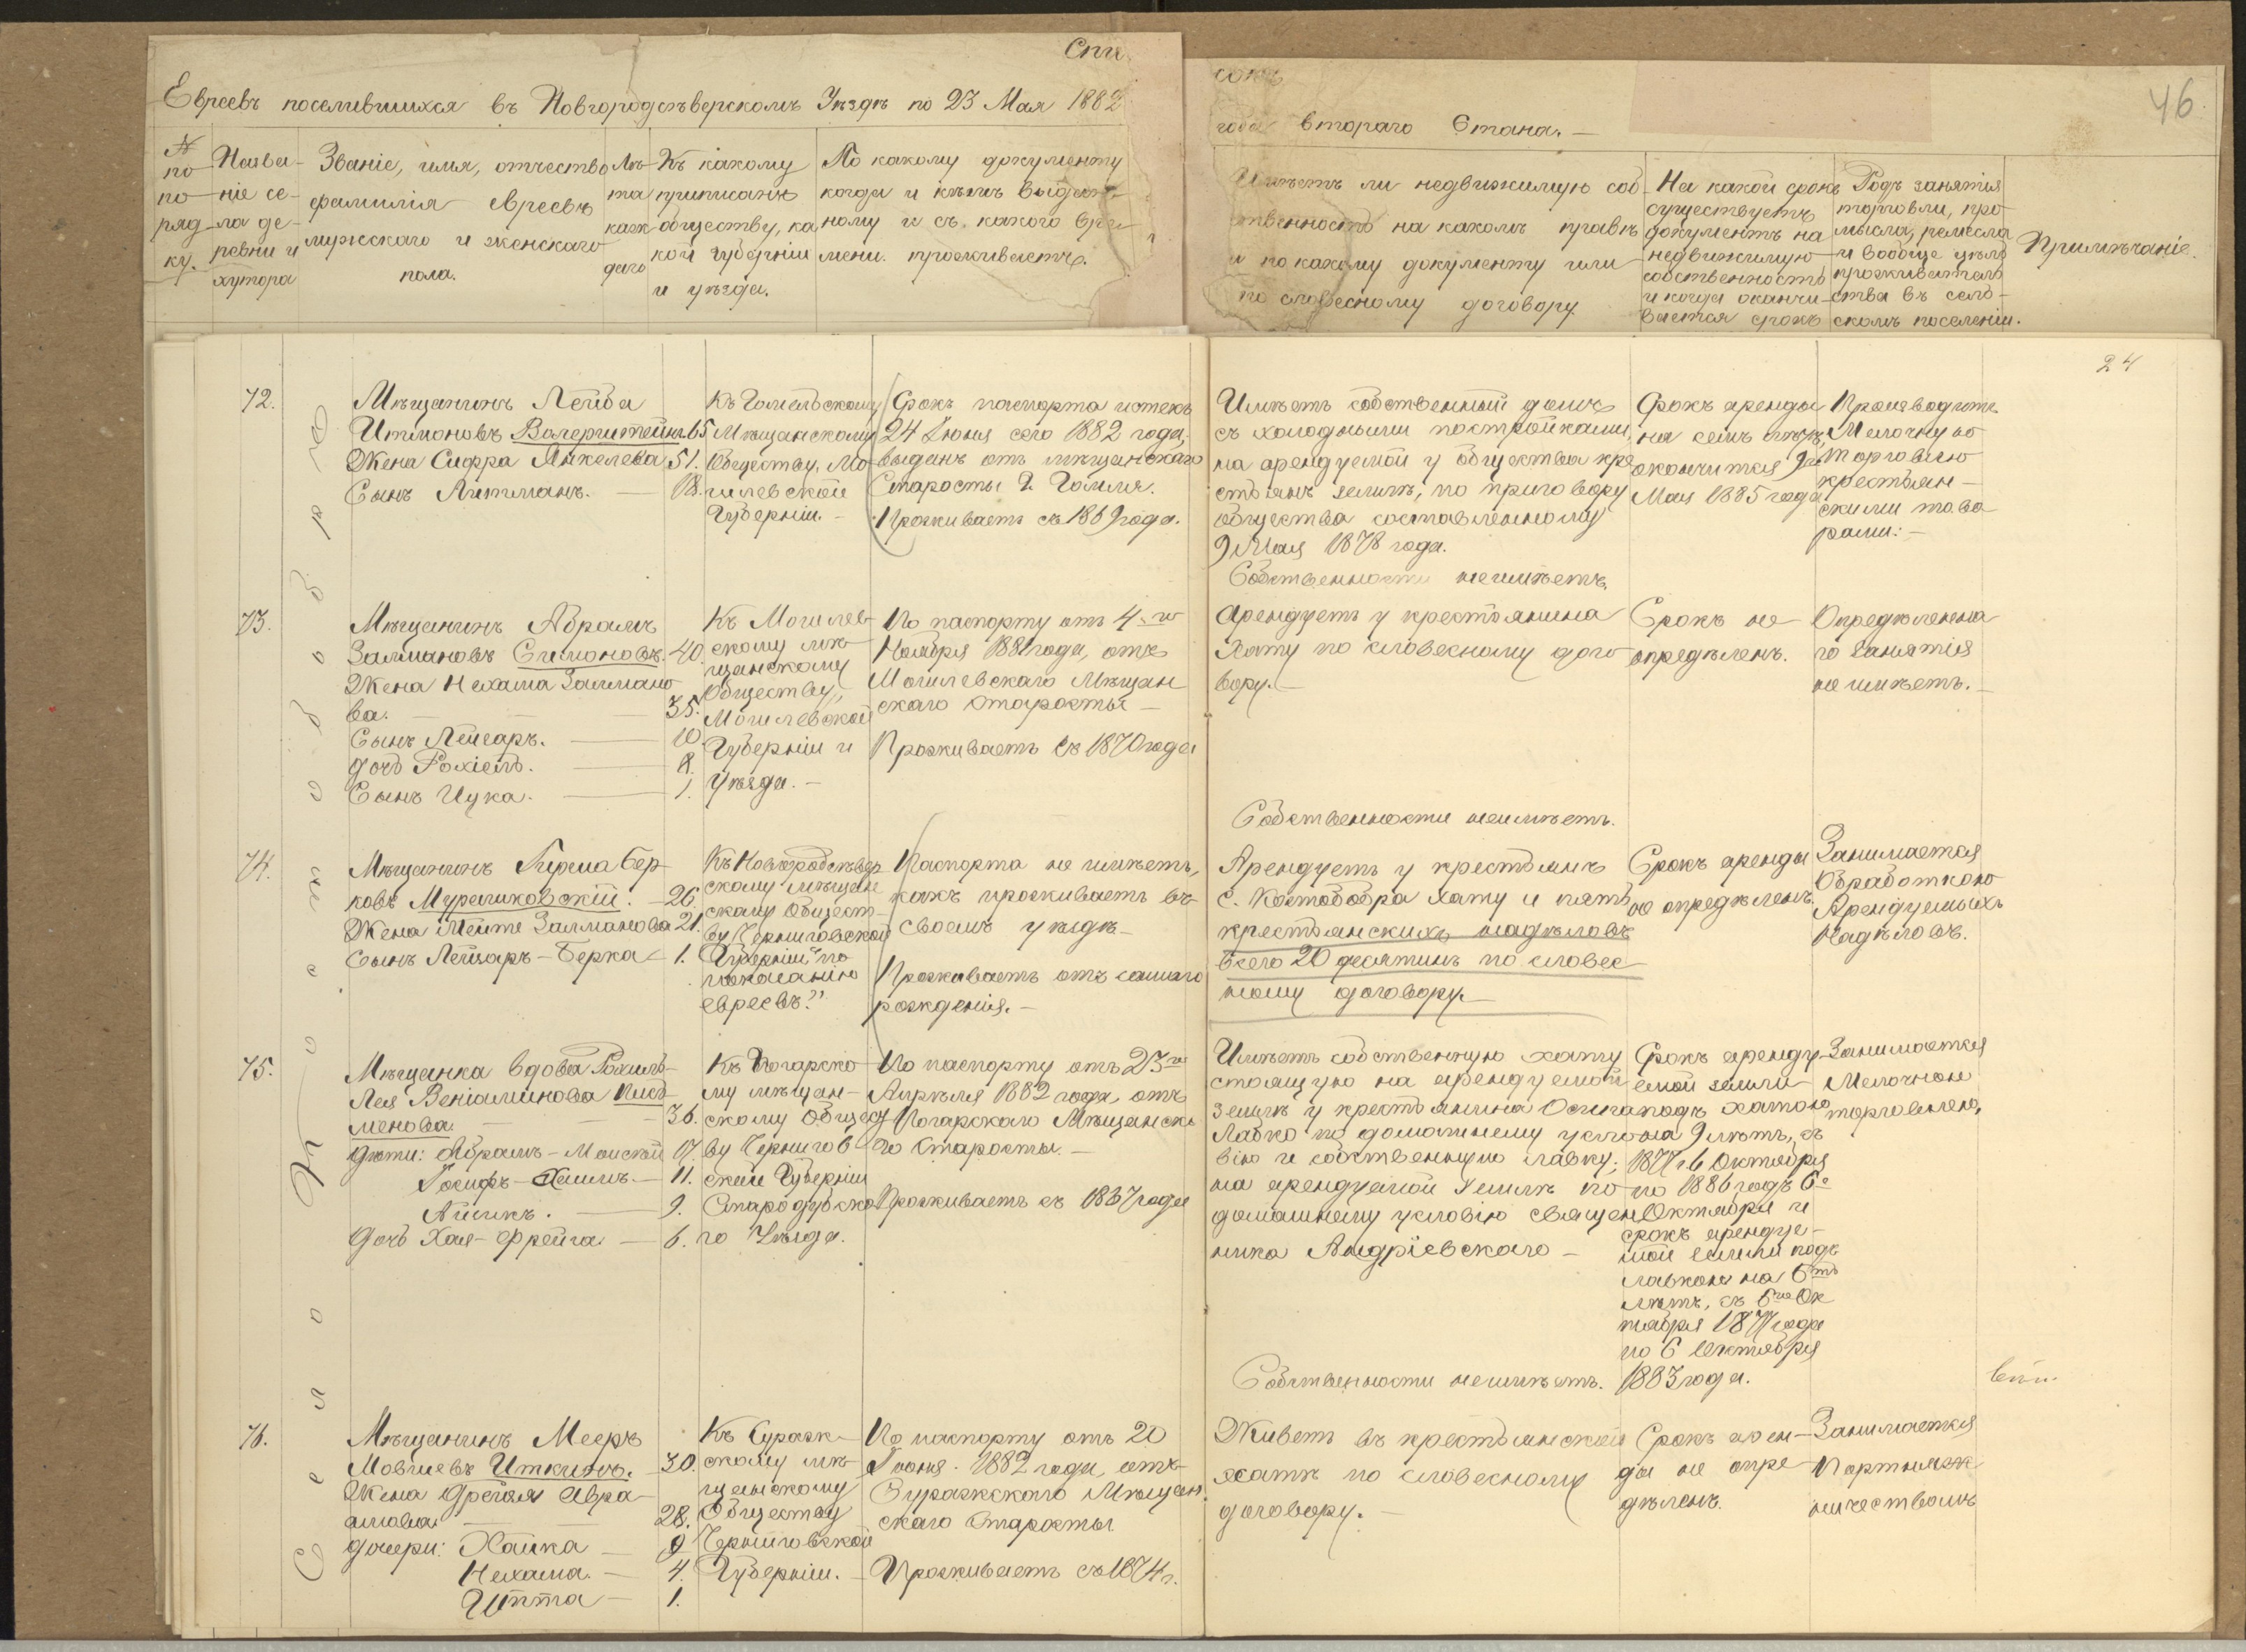 Спи
сокъ
46
Евреевъ поселившихся въ Новгородсѣверскомъ Уѣздѣ по 23 Мая 1882
года втораго Стана. —
№ по по ряд ку.
Назва-
ніе се-
ла де-
ревни и
хутора
Званіе, имя, отчество
фамилія евреевъ
мужскаго и женскаго
пола.
Лѣ-
та
каж
даго
Къ какому
приписанъ
обществу, ка
кой губерніи
и уѣзда.
По какому документу
когда и кѣмъ выдан-
ному и съ какого вре-
мени проживаетъ.
Имѣетъ ли недвижимую соб
ственность на какомъ правѣ
и по какому документу или
по словесному договору
На какой срокъ
существуетъ
документъ на
недвижимую
собственность
и когда оканчи-
вается срокъ
Родъ занятія
торговли, про
мысла, ремесла
и вообще цѣль
проживатель
ства въ сель-
скомъ поселеніи.
Примѣчаніе.
24
Село Костобобра
72.
Мѣщанинъ Лейба
Итмановъ Валерштейнъ 65
Жена Сифра Янкелева 51.
Сынъ Литманъ. — 18.
Къ Гомельскому
Мѣщанскому
Обществу, Мо-
гилевской
Губерніи. —
Срокъ паспорта истекъ
24 Іюня сего 1882 года,
выданъ отъ мѣщанскаго
Старосты г. Гомля.
Проживаетъ съ 1869 года.
Имѣетъ собственный домъ
съ холодными постройками,
на арендуемой у общества кре
стьянъ землѣ, по приговору
общества составленному
9 Мая 1878 года.
Срокъ аренды
на семь лѣтъ,
окончится 9го
Мая 1885 года
Производитъ
Мелочную
торговлю
крестьян-
скими това
рами: —
73.
Мѣщанинъ Абрамъ
Залмановъ Симоновъ. 40.
Жена Нехама Залмано
ва. — 35.
Сынъ Лейзаръ. — 10.
дочь Рохіель. — 8.
Сынъ Ицка. — 1.
Къ Могилев-
скому мѣ-
щанскому
Обществу,
Могилевской
Губерніи и
Уѣзда. —
По паспорту отъ 4-го
Ноября 1881 года, отъ
Могилевскаго Мѣщан
скаго Старосты —
Проживаетъ съ 1870 года
Собственности неимѣетъ.
Арендуетъ у крестьянина
Хату по словесному дого
вору. —
Срокъ не
опредѣленъ.
Опредѣленна
го занятія
не имѣетъ. —
74.
Мѣщанинъ Гирша Бер-
ковъ Мурашковскій. — 26.
Жена Мейте Залманова 21.
Сынъ Лейзаръ-Берка 1.
Къ Новгородсѣвер
скому мѣщан
скому Общест-
ву Черниговской
Губерніи „по
показанію
евреевъ?"
Паспорта не имѣетъ,
какъ проживаетъ въ
своемъ уѣздѣ —
Проживаетъ отъ самаго
рожденія. —
Собственности неимѣетъ.
Арендуетъ у крестьянъ
с. Костобобра хату и пять
крестьянскихъ надѣловъ
всего 20 десятинъ по словес-
ному договору. —
Срокъ аренды
не опредѣленъ.
Занимается
Обработкою
Арендуемыхъ
Надѣловъ.
75.
Мѣщанка вдова Рохиль-
Лея Веніаминова
менова — 36.
дѣти: Абрамъ-Моисей 17.
Іосифъ-Хаимъ. — 11.
Айзикъ. — 9.
дочь Хая-Фрейга — 6.
Къ Погарско
му мѣщан-
скому Общест
ву Чернигов-
ской Губерніи
Стародубска
го Уѣзда.
По паспорту отъ 23го
Апрѣля 1882 года, отъ
Погарскаго Мѣщанска
го Старосты. —
Проживаетъ съ 1867 года
Имѣетъ собственную хату
стоящую на арендуемой
землѣ у крестьянина Осипа
Лабко по домашнему усло
вію и собственную лавку;
на арендуемой землѣ по
домашнему условію священ
ника Андріевскаго —
Срокъ аренду-
емой земли
подъ хатою
на 9 лѣтъ, съ
1877 г. 6 Октября
по 1886 годъ 6е
Октября и
срокъ арендуе-
мой земли подъ
лавкою на 6ть
лѣтъ, съ 6го Ок
тября 1877 года
по 6 Октября
1883 года.
Занимается
Мелочною
торговлею.
76.
Мѣщанинъ Мееръ
Мовшевъ Иткинъ. 30.
Жена Фрейда Авра-
амова — 28.
дочери: Хаика — 9
Нехама. — 4.
— 1.
Къ Сураж-
скому мѣ-
щанскому
Обществу
Черниговской
Губерніи. —
По паспорту отъ 20
Іюня 1882 года, отъ
Суражскаго Мѣщан
скаго Старосты
Проживаетъ съ 1874 г.
Собственности неимѣетъ.
Живетъ въ крестьянской
хатѣ по словесному
договору. —
Срокъ арен-
ды не опре
дѣленъ.
Занимается
Портняж
ничествомъ